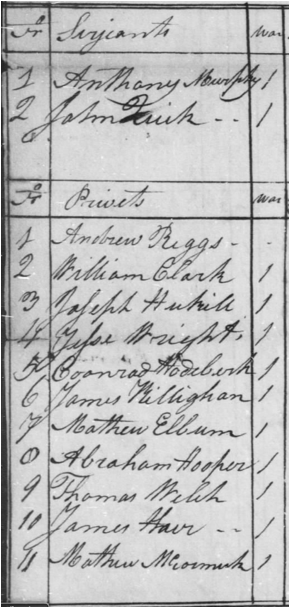 No Serjeants War
1 Anthony Murphy 1
2 John Quick -- 1
No Privets War
1 Andrew Riggs - -
2 William Clark 1
3 Joseph Hukill 1
4 Jesse Wright 1
5 Coonrad Hodebeck 1
6 James Killighan 1
7 Mathew Elbum 1
8 Abraham Hooper 1
9 Thomas Welch 1
10 James Hair -- 1
11 Mathew McCormick 1